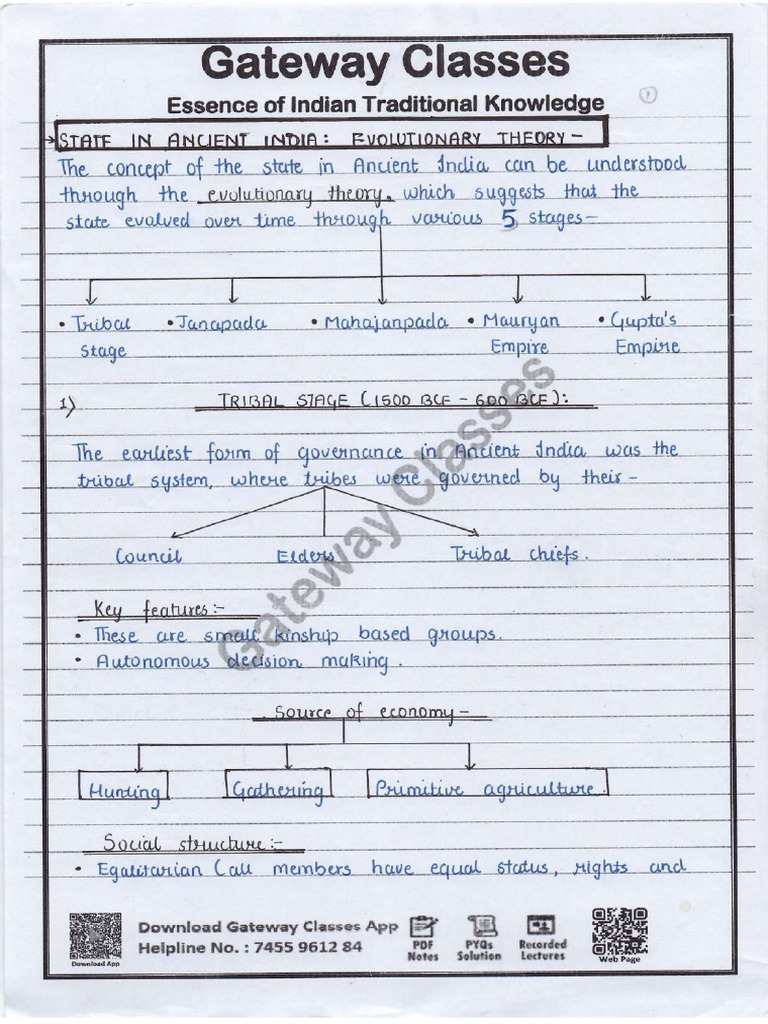 Gateway Classes
Essence of Indian Traditional Knowledge
1
STATE IN ANCIENT INDIA: EVOLUTIONARY THEORY -
The concept of the state in Ancient India can be understood
through the evolutionary theory, which suggests that the
state evolved over time through various 5 stages -
• Tribal Stage
• Janapada
• Mahajanpada
• Mauryan Empire
• Gupta's Empire
1) TRIBAL STAGE (1500 BCE - 600 BCE):
The earliest form of governance in Ancient India was the
tribal system, where tribes were governed by their -
Council Elders Tribal chiefs.
Key features:-
• These are small kinship based groups.
• Autonomous decision making.
Source of economy -
Hunting Gathering Primitive agriculture.
Social structure:-
• Egalitarian (all members have equal status, rights and
Gateway Classes
Download App
Download Gateway Classes App
Helpline No. : 7455 9612 84
PDF Notes
PYQs Solution
Recorded Lectures
Web Page